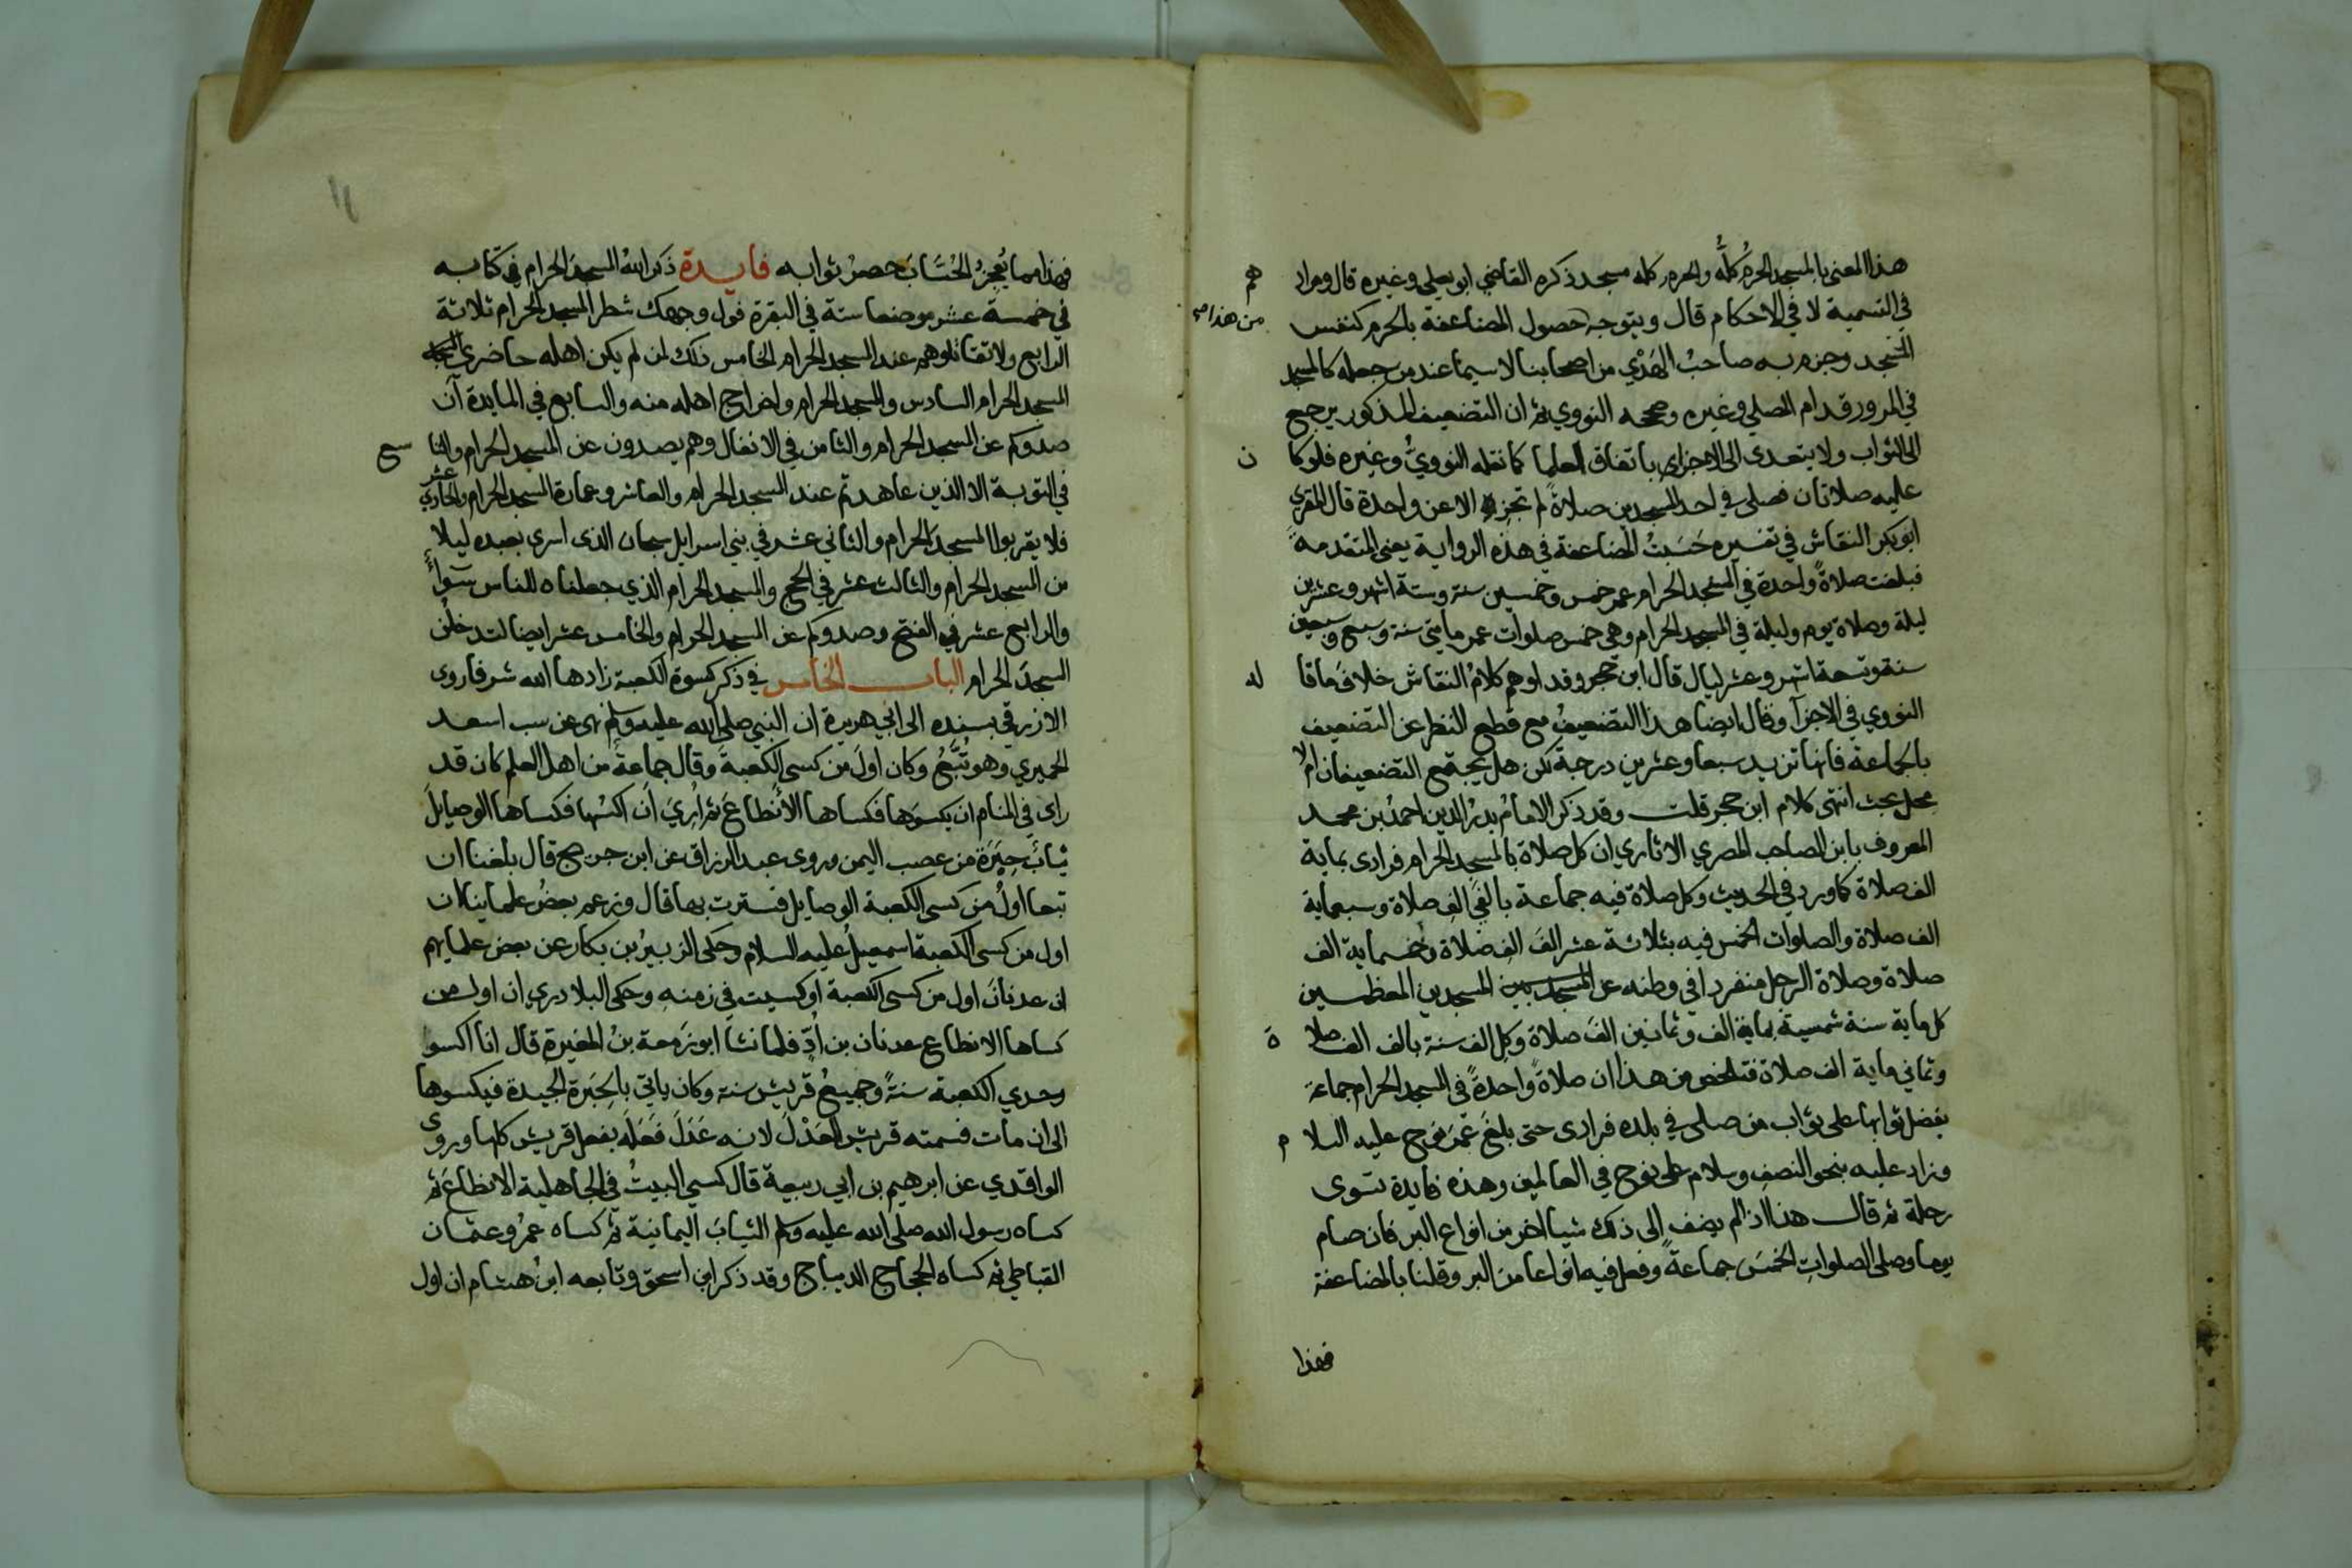 هذا المعنى بالمسجد الحرم كله والحرم كله مسجد ذكره القاضي ابو يعلى وغيره قال ومراد هم
في التسمية لا في الاحكام قال ويتوجه من هذا حصول المضاعفة بالحرم كنفس
المسجد وجزم به صاحب الهدي من اصحابنا لا سيما عند من جعله كالمسجد
في المرور قدام المصلي وغيره وصححه النووي ثم ان التضعيف المذكور يرجع
الى الثواب ولا يتعدى الى الاجزاء باتفاق العلما كما نقله النووي وغيره فلو كا ن
عليه صلاتان فصلى في احد المسجدين صلاة لم تجزه الا عن واحدة قال المقري
ابو بكر النقاش في تفسيره حسبت المضاعفة في هذه الرواية يعني المتقدمة
فبلغت صلاة واحدة في المسجد الحرام عمر خمس وخمسين سنة وستة اشهر وعشرين
ليلة وصلاة يوم وليلة في المسجد الحرام وهي خمس صلوات عمر مايتي سنة وسبع وسبعين
سنة وتسعة اشهر وعشر ليال قال ابن حجر وقد اوهم كلام النقاش خلاف ما قا له
النووي في الاجزآ وقال ايضا هذا التضعيف مع قطع النظر عن التضعيف
بالجماعة فانها تزيد سبعا وعشرين درجة لكن هل يجتمع التضعيفان ام لا
محل بحث انتهى كلام ابن حجر قلت وقد ذكر الامام بدر الدين احمد بن محمد
المعروف بابن الصاحب المصري الاثاري ان كل صلاة بالمسجد الحرام فرادى بماية
الف صلاة كما ورد في الحديث وكل صلاة فيه جماعة بالفي الف صلاة وسبعماية
الف صلاة والصلوات الخمس فيه بثلاثة عشر الف الف صلاة وخمسماية الف
صلاة وصلاة الرجل منفردا في وطنه عن المسجدين المسجدين المعظمين
كل ماية سنة شمسية بماية الف وثمانين الف صلاة وكل الف سنة بالف الف صلا ة
وثماني ماية الف صلاة فتلخص من هذا ان صلاة واحدة في المسجد الحرام جماعة
يفضل ثوابها على ثواب من صلى في بلده فرادى حتى بلغ عمر نوح عليه السلا م
وزاد عليه بنحو النصف وسلام على نوح في العالمين وهذه فايدة تسوى
رحلة ثم قال هذا اذا لم يضف الى ذلك شيا اخر من انواع البر فان صام
يوما وصلى الصلوات الخمس جماعة وفعل فيه انواعا من البر وقلنا بالمضاعفة
فهذا
فهذا مما يعجز الحساب حصر ثوابه فايدة ذكر الله المسجد الحرام في كتابه
في خمسة عشر موضعا ستة في البقرة فول وجهك شطر المسجد الحرام ثلاثة
الرابع ولا تقاتلوهم عند المسجد الحرام الخامس ذلك لمن لم يكن اهله حاضري المسجد
المسجد الحرام السادس والمسجد الحرام واخراج اهله منه والسابع في المايدة ان
صدوكم عن المسجد الحرام والثامن في الانفال وهم يصدون عن المسجد الحرام والتا سع
في التوبة الا الذين عاهدتم عند المسجد الحرام والعاشر وعمارة المسجد الحرام والحادي عشر
فلا يقربوا المسجد الحرام والثاني عشر في بني اسرايل سبحان الذي اسرى بعبده ليلا
من المسجد الحرام والثالث عشر في الحج والمسجد الحرام الذي جعلناه للناس سواء
والرابع عشر في الفتح وصدوكم عن المسجد الحرام والخامس عشر ايضا لتدخلن
المسجد الحرام الباب الخامس في ذكر كسوة الكعبة زادها الله شرفا روى
الازرقي بسنده الى ابي هريرة ان النبي صلى الله عليه وسلم نهى عن سب اسعد
الحميري وهو تبع وكان اول من كسى الكعبة وقال جماعة من اهل العلم كان قد
راى في المنام ان يكسوها فكساها الانطاع ثم اري ان اكسها فكساها الوصايل
ثياب حبرة من عصب اليمن وروى عبد الرزاق عن ابن جريج قال بلغنا ان
تبعا اول من كسى الكعبة الوصايل فسترت بها قال وزعم بعض علماينا ان
اول من كسى الكعبة اسمعيل عليه السلام وحكى الزبير بن بكار عن بعض علمايهم
ان عدنان اول من كسى الكعبة او كسيت في زمنه وحكى البلادري ان اول من
كساها الانطاع عدنان بن اد فلما نشا ابو زمعة بن المغيرة قال انا اكسوا
وحدي الكعبة سنة وجميع قريش سنة وكان ياتي بالحبرة الجيدة فيكسوها
الى ان مات فسمته قريش العدل لانه عدل فعله بفعل قريش كلها وروى
الواقدي عن ابرهيم بن ابي ربيعة قال كسي البيت في الجاهلية الانطاع ثم
كساه رسول الله صلى الله عليه وسلم الثياب اليمانية ثم كساه عمر وعثمان
القباطي ثم كساه الحجاج الديباج وقد ذكر ابن اسحق وتابعه ابن هشام ان اول